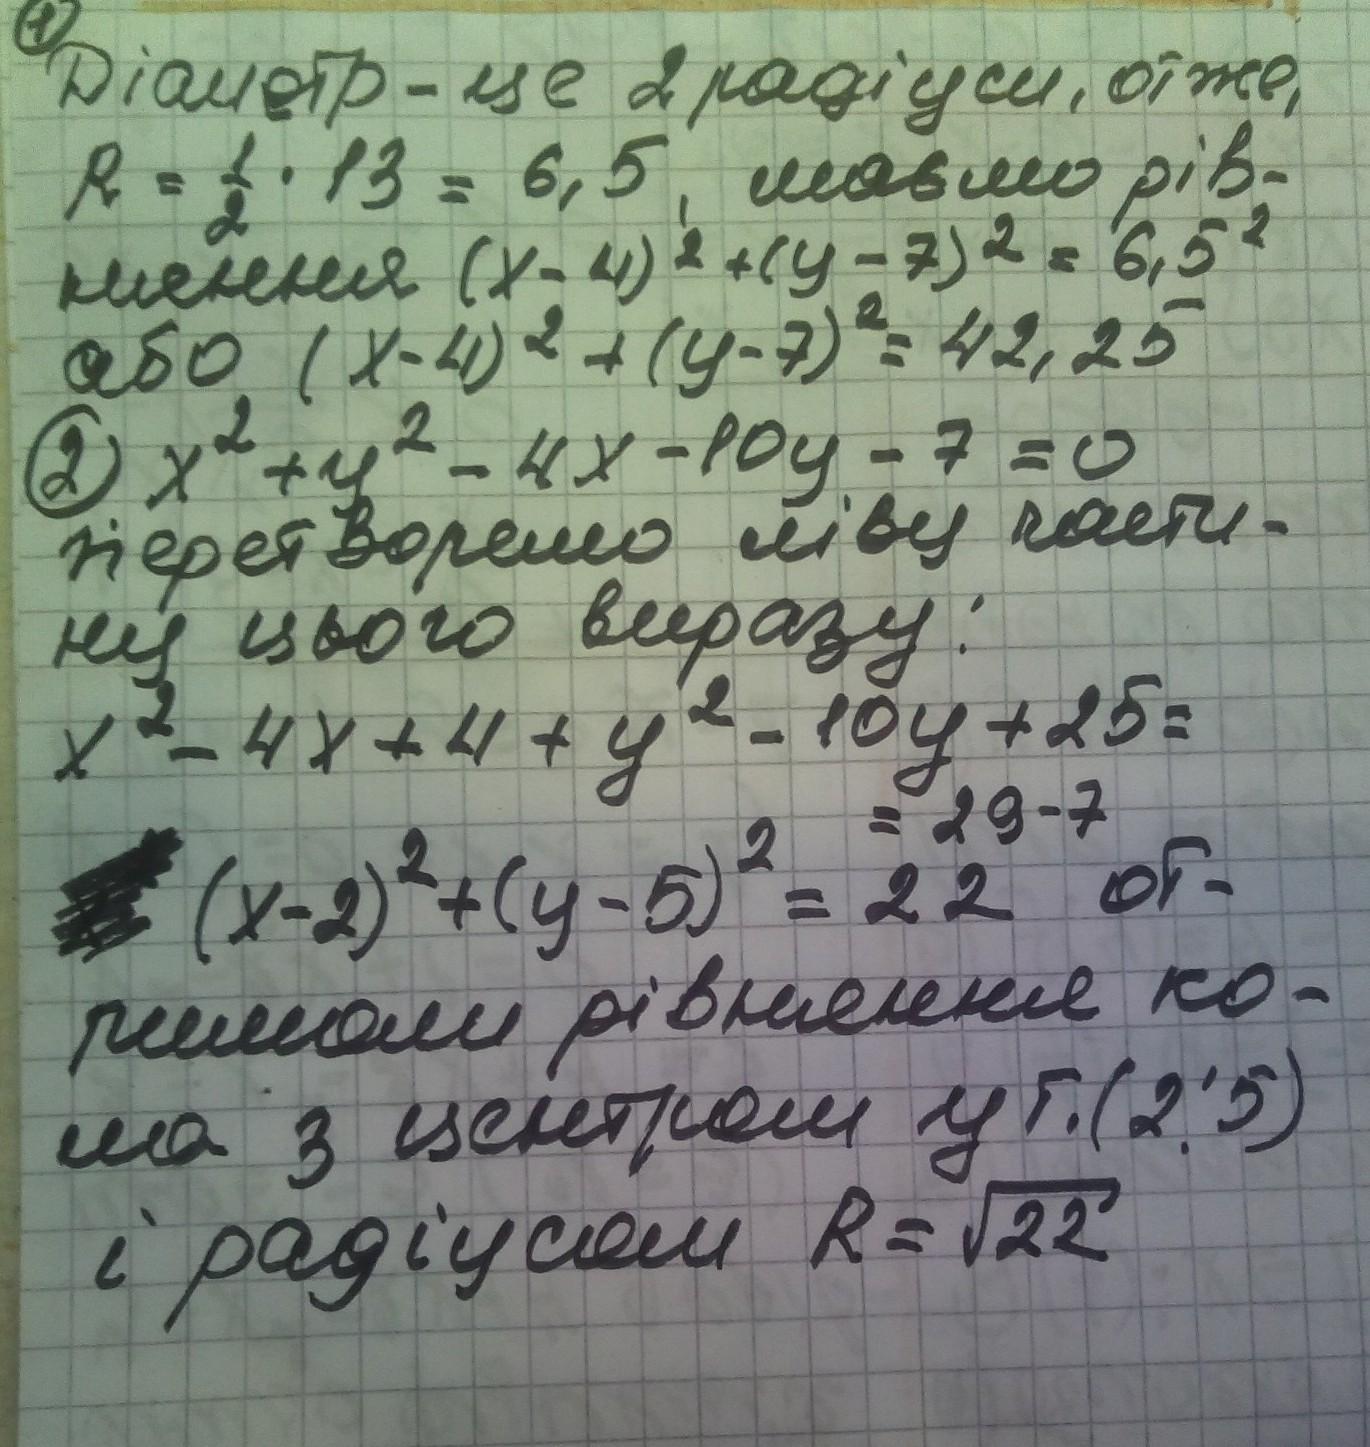 1
Діаметр - це 2 радіуси, отже,
R = 1/2 · 13 = 6,5, маємо рів-
няння (x - 4)² + (y - 7)² = 6,5²
або (x - 4)² + (y - 7)² = 42,25
2) x² + y² - 4x - 10y - 7 = 0
перетворемо ліву части-
ну цього виразу:
x² - 4x + 4 + y² - 10y + 25 =
= 29 - 7
(x - 2)² + (y - 5)² = 22 от-
римали рівняння ко-
ла з центром у т. (2; 5)
і радіусом R = √22